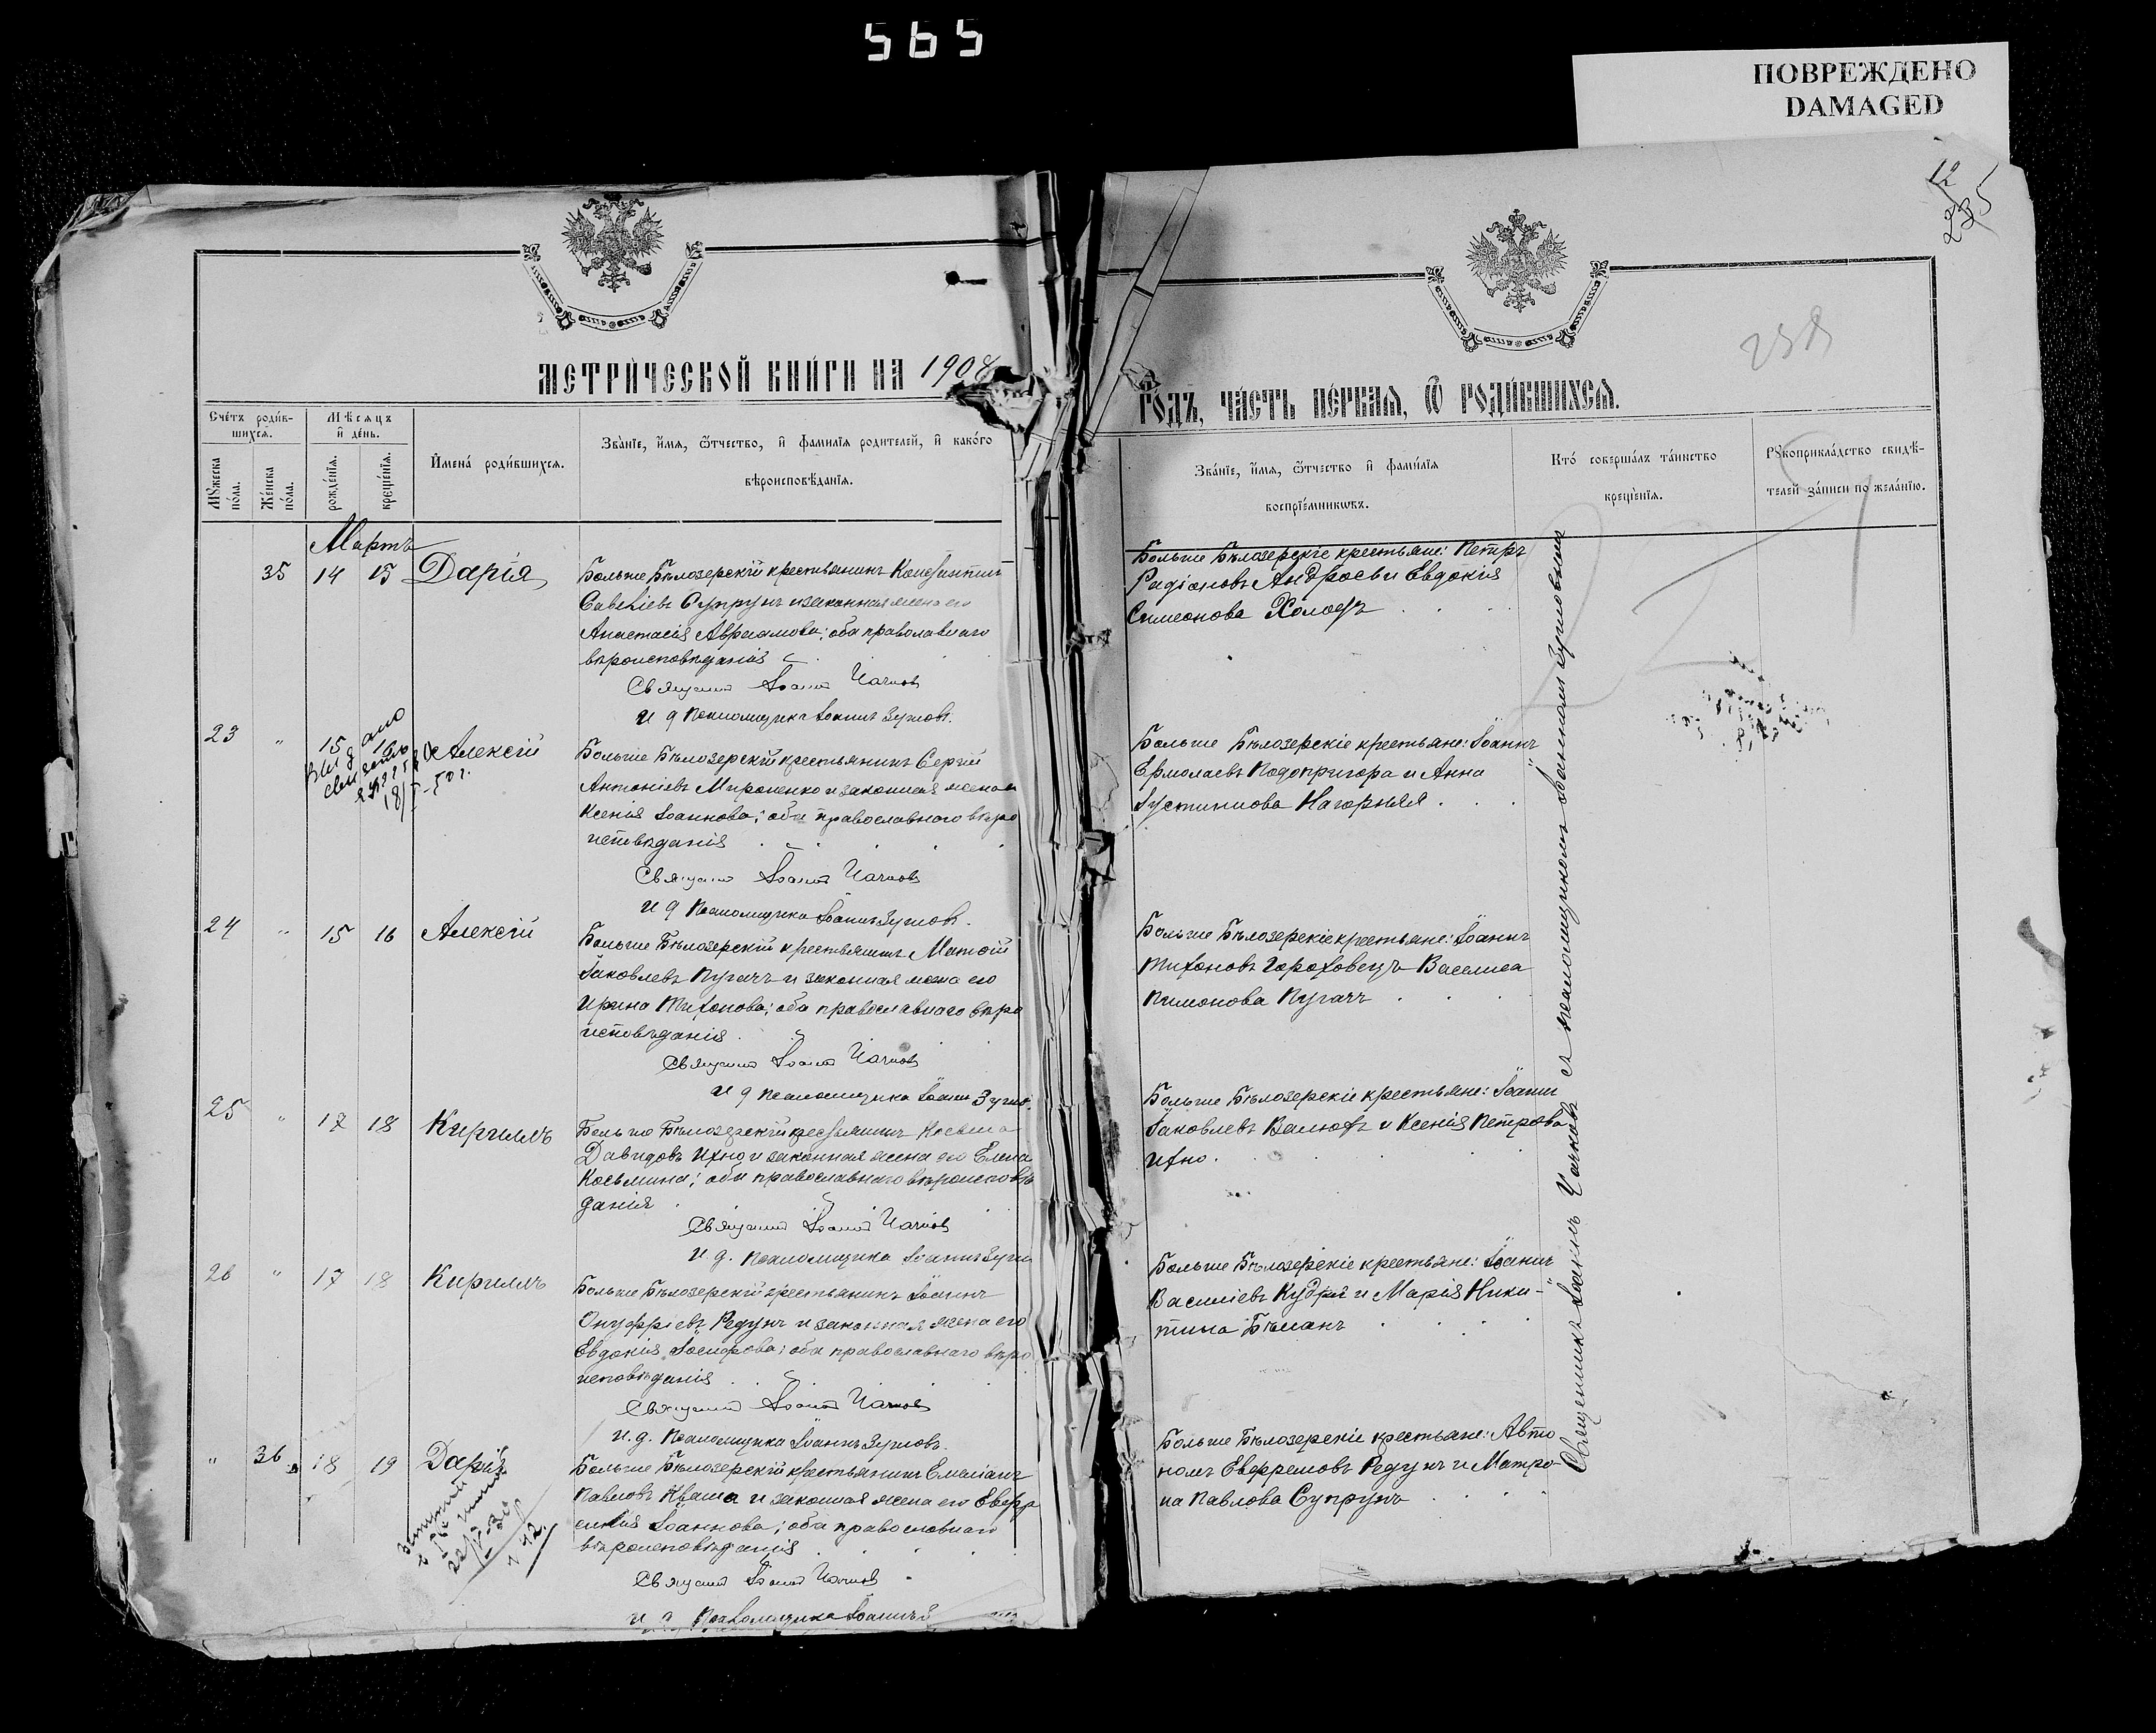 565
ПОВРЕЖДЕНО
DAMAGED
12
235
МЕТРИ́ЧЕСКОЙ КНИ́ГИ НА 1908
ГО́ДЪ, ЧА́СТЬ ПЕ́РВАѦ, Ѽ РОДИ́ВШИХСѦ.
Сче́тъ роди́в-
шихсѧ.
Мѣ́сѧцъ
и҆ де́нь.
Мꙋ́жеска
по́ла.
Же́нска
по́ла.
рожде́нїѧ.
креще́нїѧ.
И҆мена́ роди́вшихсѧ.
Зва́нїе, и҆́мѧ, ѻ҆́тчество, и҆ фами́лїѧ роди́телей, и҆ како́гѡ
вѣроисповѣ́данїѧ.
Зва́нїе, и҆́мѧ, ѻ҆́тчество и҆ фами́лїѧ
воспрїе́мникѡвъ.
Кто́ соверша́лъ та́инство
креще́нїѧ.
Рꙋкоприкла́дство свидѣ́-
телей за́писи по жела́нїю.
Мартъ
35 14 15 Дарія
Больше Бѣлозерскій крестьянинъ Константинъ
Савеліевъ Супрунъ и законная жена его
Анастасія Авраамова; оба православнаго
вѣроисповѣданія
Священ Іоаннъ Чачковъ
И д Псаломщика Іоаннъ Зусловъ.
Больше Бѣлозерскіе крестьяне: Петръ
Радіоновъ Андросъ и Евдокія
Симеонова Холодъ
23 " 15 16 Алексій
Больше Бѣлозерскій крестьянинъ Сергій
Антоніевъ Мироненко и законная жена его
Ксенія Іоаннова; оба православнаго вѣро
исповѣданія
Священ Іоаннъ Чачковъ
И д Псаломщика Іоаннъ Зусловъ.
Больше Бѣлозерскіе крестьяне: Іоаннъ
Ермолаевъ Подопригора и Анна
Іустинова Нагорняя
24 " 15 16 Алексій
Больше Бѣлозерскій крестьянинъ Матѳій
Іаковлевъ Пугачъ и законная жена его
Ирина Тихонова; оба православнаго вѣро
исповѣданія
Священ Іоаннъ Чачковъ
И д Псаломщика Іоаннъ Зусло
Больше Бѣлозерскіе крестьяне: Іоаннъ
Тихоновъ Гороховецъ Василиса
Пимонова Пугачъ
25 " 17 18 Кириллъ
Больше Бѣлозерскій крестьянинъ Косьма
Давидовъ Ихно и законная жена его Елена
Косьмина; оба православнаго вѣроисповѣ
данія
Священ Іоаннъ Чачковъ
И. д. Псаломщика Іоаннъ Зусло
Больше Бѣлозерскіе крестьяне: Іоаннъ
Іаковлевъ Валюхъ и Ксенія Петрова
Ихно.
26 " 17 18 Кириллъ
Больше Бѣлозерскій крестьянинъ Іоаннъ
Онуфріевъ Редунъ и законная жена его
Евдокія Іосифова; оба православнаго вѣро
исповѣданія
Священ Іоаннъ Чачковъ
И. д. Псаломщика Іоаннъ Зусловъ.
Больше Бѣлозерскіе крестьяне: Іоаннъ
Василіевъ Кудря и Марія Ники-
тина Бѣланъ
" 36 18 19 Дарія
Больше Бѣлозерскій крестьянинъ Емеліанъ
Павловъ Кваша и законная жена его Евфр
синія Іоаннова; оба православнаго
вѣроисповѣданія
Священ Іоаннъ Чачковъ
И д Псаломщика Іоаннъ З
Больше Бѣлозерскіе крестьяне: Авто
номъ Евфремовъ Редунъ и Матро-
на Павлова Супрунъ
Священникъ Іоаннъ Чачковъ съ псаломщикомъ Іоанномъ Зусловымъ